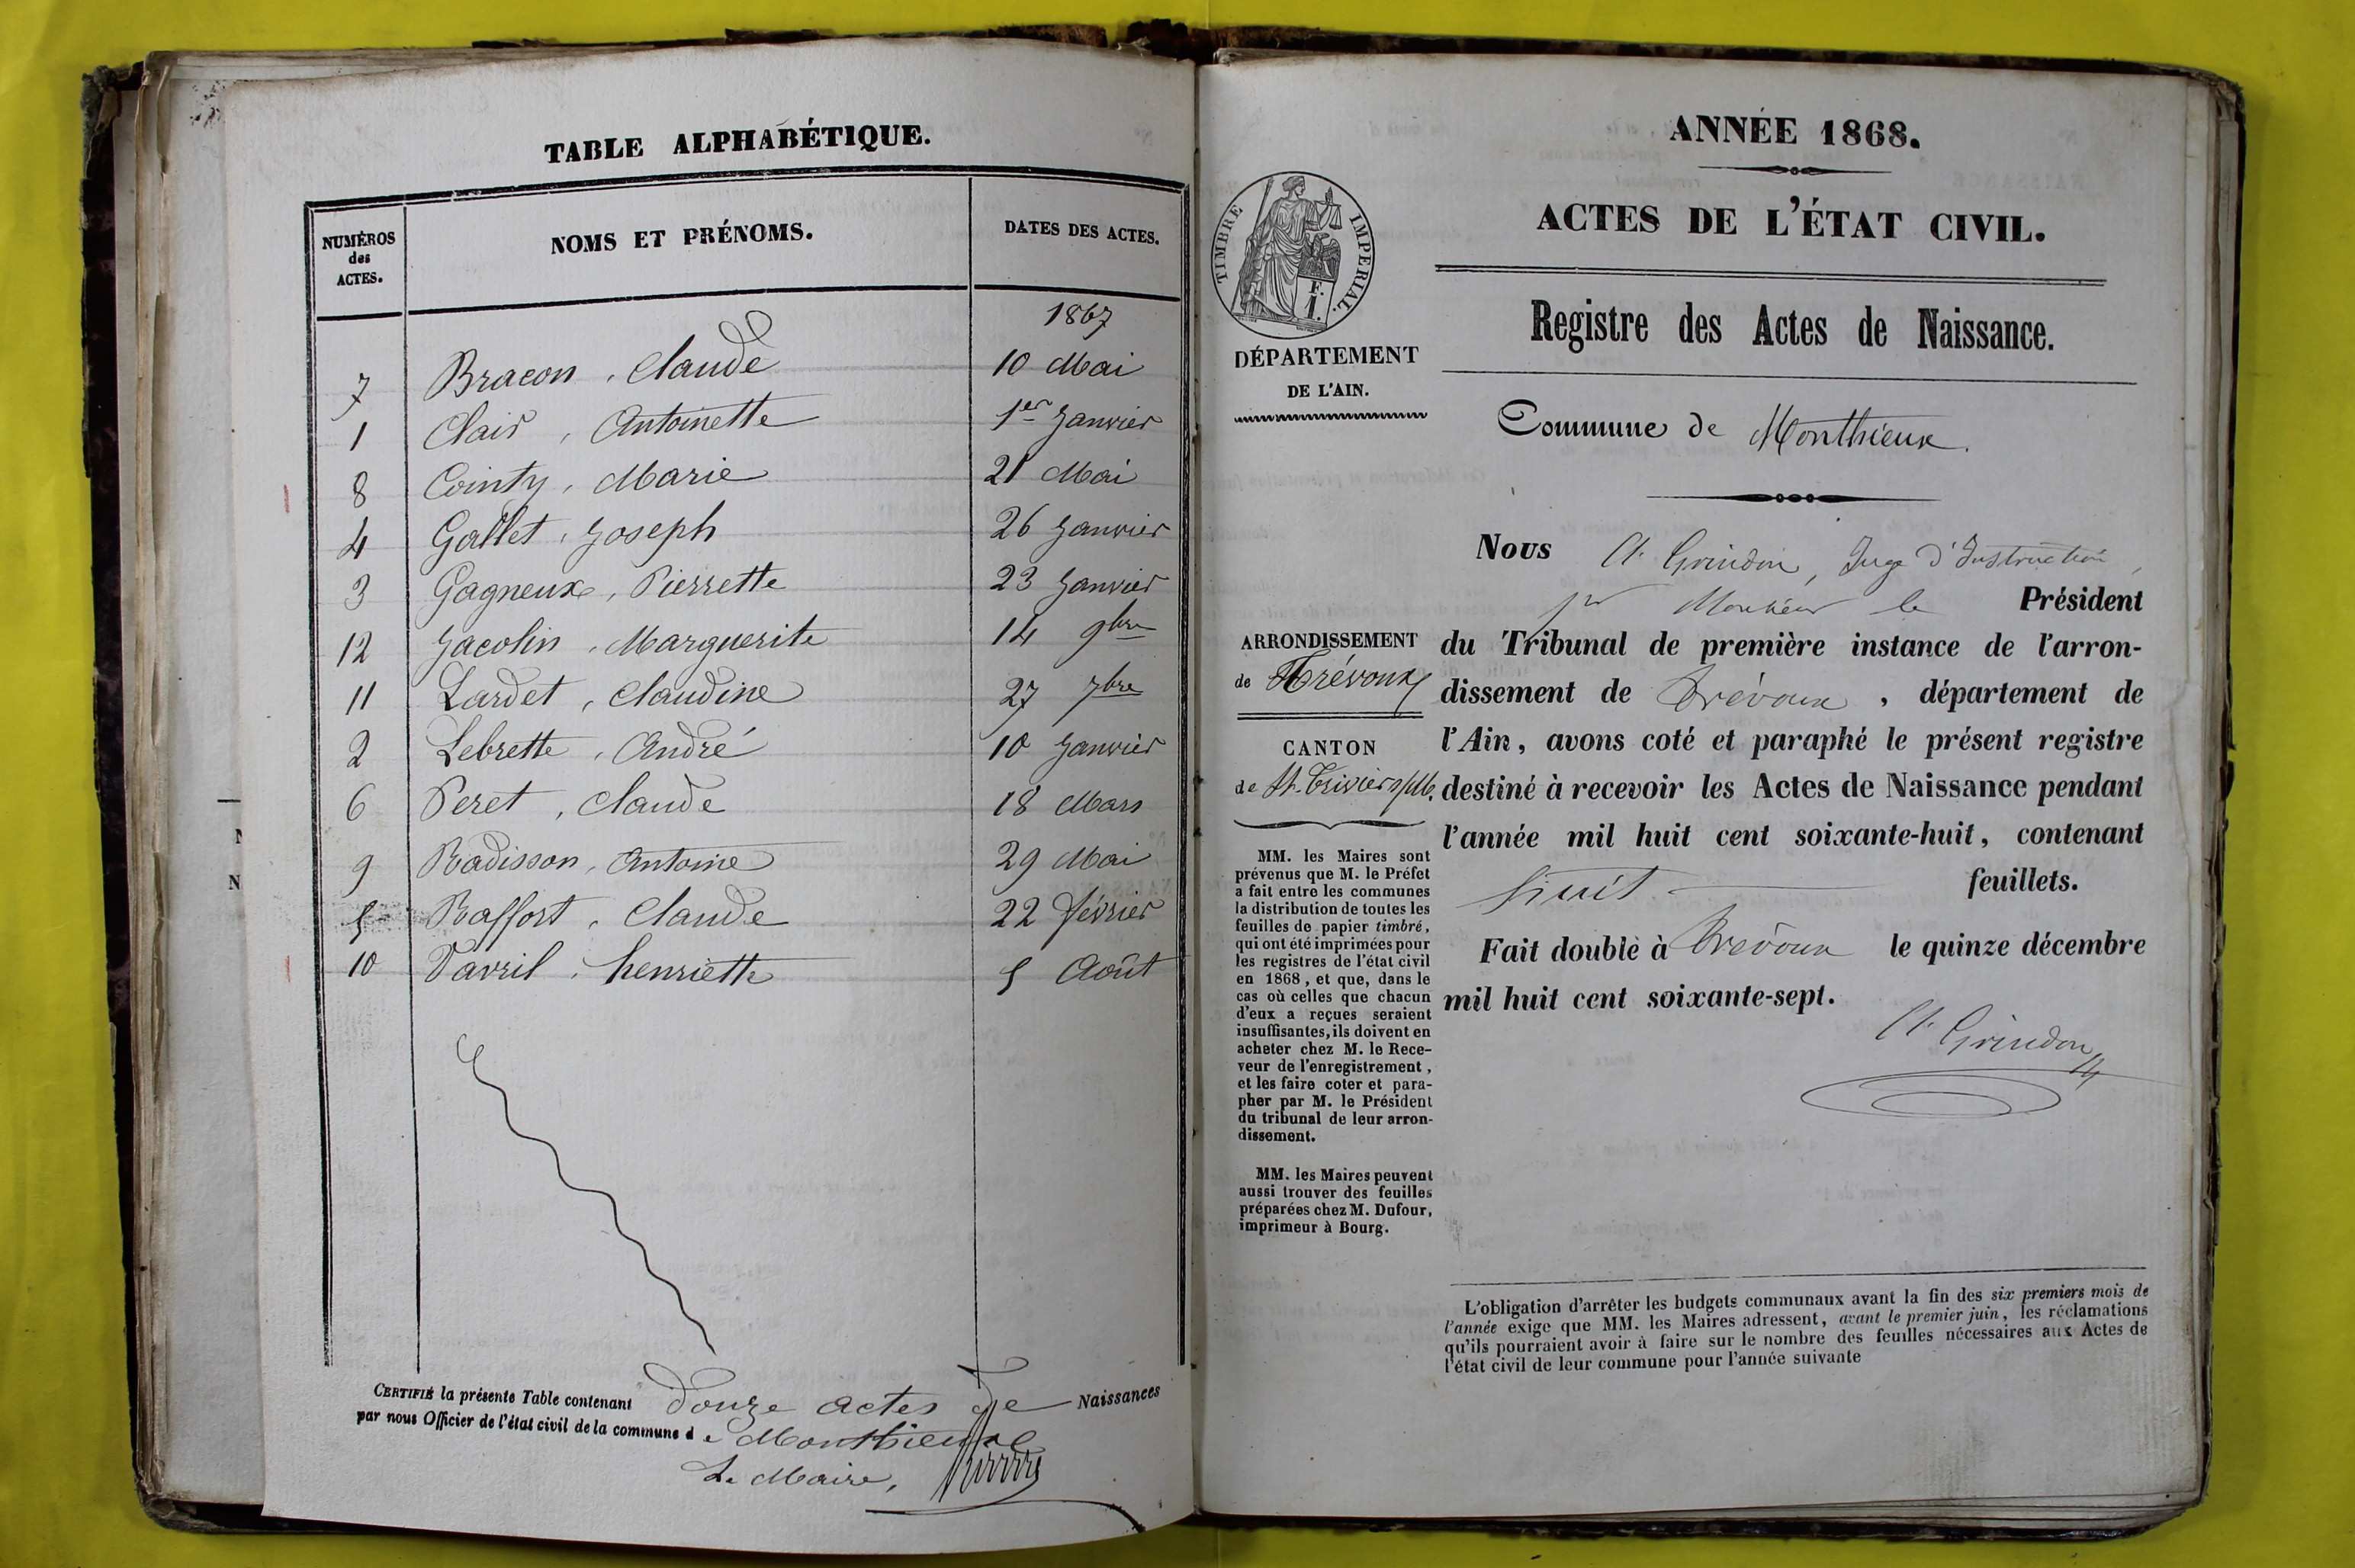 TABLE ALPHABÉTIQUE.
NUMÉROS des ACTES. NOMS ET PRÉNOMS. DATES DES ACTES.
1867
7 Bracon, Claude 10 Mai
1 Clair, Antoinette 1er Janvier
8 Cointy, Marie 21 Mai
4 Gallet, Joseph 26 Janvier
3 Gagneux, Pierrette 23 Janvier
12 Jacolin, Marguerite 14 9bre
11 Lardet, Claudine 27 7bre
2 Lebrette, André 10 Janvier
6 Peret, Claude 18 Mars
9 Radisson, Antoine 29 Mai
5 Raffort, Claude 22 février
10 Vavril, henriette 5 Août
CERTIFIÉ la présente Table contenant Douze actes de Naissances
par nous Officier de l'état civil de la commune de Monthieux
Le Maire,
N
N
ANNÉE 1868.
ACTES DE L'ÉTAT CIVIL.
Registre des Actes de Naissance.
TIMBRE IMPERIAL.
F.
1.
DÉPARTEMENT
DE L'AIN.
Commune de Monthieux.
ARRONDISSEMENT
de Trévoux
CANTON
de St. Trivier s/M.
MM. les Maires sont
prévenus que M. le Préfet
a fait entre les communes
la distribution de toutes les
feuilles de papier timbré,
qui ont été imprimées pour
les registres de l'état civil
en 1868, et que, dans le
cas où celles que chacun
d'eux a reçues seraient
insuffisantes, ils doivent en
acheter chez M. le Rece-
veur de l'enregistrement,
et les faire coter et para-
pher par M. le Président
du tribunal de leur arron-
dissement.
MM. les Maires peuvent
aussi trouver des feuilles
préparées chez M. Dufour,
imprimeur à Bourg.
Nous A. Grindon, Juge d'Instruction,
pr Monsieur le Président
du Tribunal de première instance de l'arron-
dissement de Trévoux, département de
l'Ain, avons coté et paraphé le présent registre
destiné à recevoir les Actes de Naissance pendant
l'année mil huit cent soixante-huit, contenant
huit feuillets.
Fait double à Trévoux le quinze décembre
mil huit cent soixante-sept.
A. Grindon
L'obligation d'arrêter les budgets communaux avant la fin des six premiers mois de
l'année exige que MM. les Maires adressent, avant le premier juin, les réclamations
qu'ils pourraient avoir à faire sur le nombre des feuilles nécessaires aux Actes de
l'état civil de leur commune pour l'année suivante